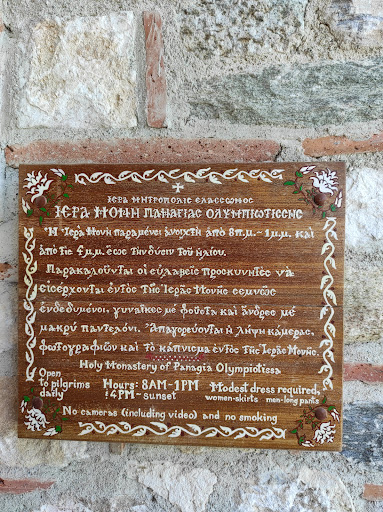 ΙΕΡΑ ΜΗΤΡΟΠΟΛΙΣ ΕΛΑΣΣΩΝΟΣ
ΙΕΡΑ ΜΟΝΗ ΠΑΝΑΓΙΑΣ ΟΛΥΜΠΙΩΤΙΣΣΗΣ
Ἡ Ἱερὰ Μονὴ παραμένει ἀνοιχτὴ ἀπὸ 8π.μ.~1μ.μ. καὶ
ἀπὸ τὶς 4μ.μ. ἕως τὴν δύσιν τοῦ ἡλίου.
Παρακαλοῦνται οἱ εὐλαβεῖς προσκυνητὲς νὰ
εἰσέρχονται ἐντὸς τῆς Ἱερᾶς Μονῆς σεμνῶς
ἐνδεδυμένοι, γυναῖκες μὲ φοῦστα καὶ ἄνδρες μὲ
μακρὺ παντελόνι. Ἀπαγορεύονται ἡ λήψη κάμερας,
φωτογραφιῶν καὶ τὸ κάπνισμα ἐντὸς τῆς Ἱερᾶς Μονῆς.
Holy Monastery of Panagia Olympiotissa
Open to pilgrims daily
Hours: 8AM-1PM
4PM~sunset
Modest dress required,
women-skirts men-long pants
No cameras (including video) and no smoking